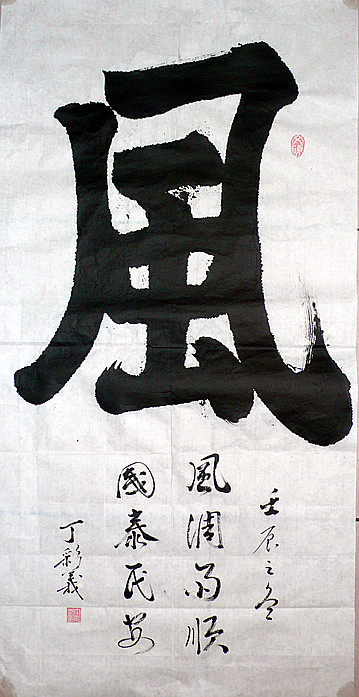 風
壬辰之冬
風調雨順
國泰民安
丁彩義